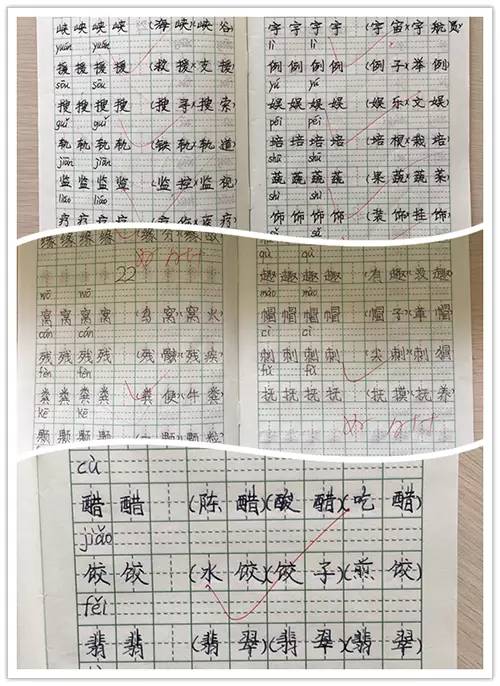 峡 峡 峡 峡 (海 峡)(峡 谷)
yuán yuán
援 援 援 援 (救 援)(支 援)
sōu sōu
搜 搜 搜 搜 (搜 寻)(搜 索)
guǐ guǐ
轨 轨 轨 轨 (铁 轨)(轨 道)
jiān jiān
监 监 监 监 (监 控)(监 视)
liáo liáo
疗 疗 疗 疗 疗)
宇 宇 宇 宇 (宇 宙)(宇 航 员)
lì lì
例 例 例 例 (例 子)(举 例)
yú yú
娱 娱 娱 娱 (娱 乐)(文 娱)
péi péi
培 培 培 培 (培 根)(栽 培)
shū shū
蔬 蔬 蔬 蔬 (果 蔬)(蔬 菜)
shì shì
饰 饰 饰 饰 (装 饰)(挂 饰)
sū sū
缘 缘 缘 缘 (缘
22
wō wō
窝 窝 窝 窝 窝)(窝 火)
cán cán
残 残 残 残 (残 残 疾)
fèn fèn
粪 粪 粪 粪 (粪 便)(牛 粪)
kē kē
颗 颗 颗 颗 颗)(颗 粒)
qù qù
趣 趣 趣 趣 (有 趣)(没 趣)
mào mào
帽 帽 帽 帽 (帽 子)(草 帽)
cì cì
刺 刺 刺 刺 (尖 刺)(刺 猬)
fǔ fǔ
抚 抚 抚 抚 (抚 摸)(抚 养)
cù
醋 醋 (陈 醋)(酸 醋)(吃 醋)
jiǎo
饺 饺 (水 饺)(饺 子)(煎 饺)
fěi
翡 翡 (翡 翠)(翡 翠)(翡 翠)